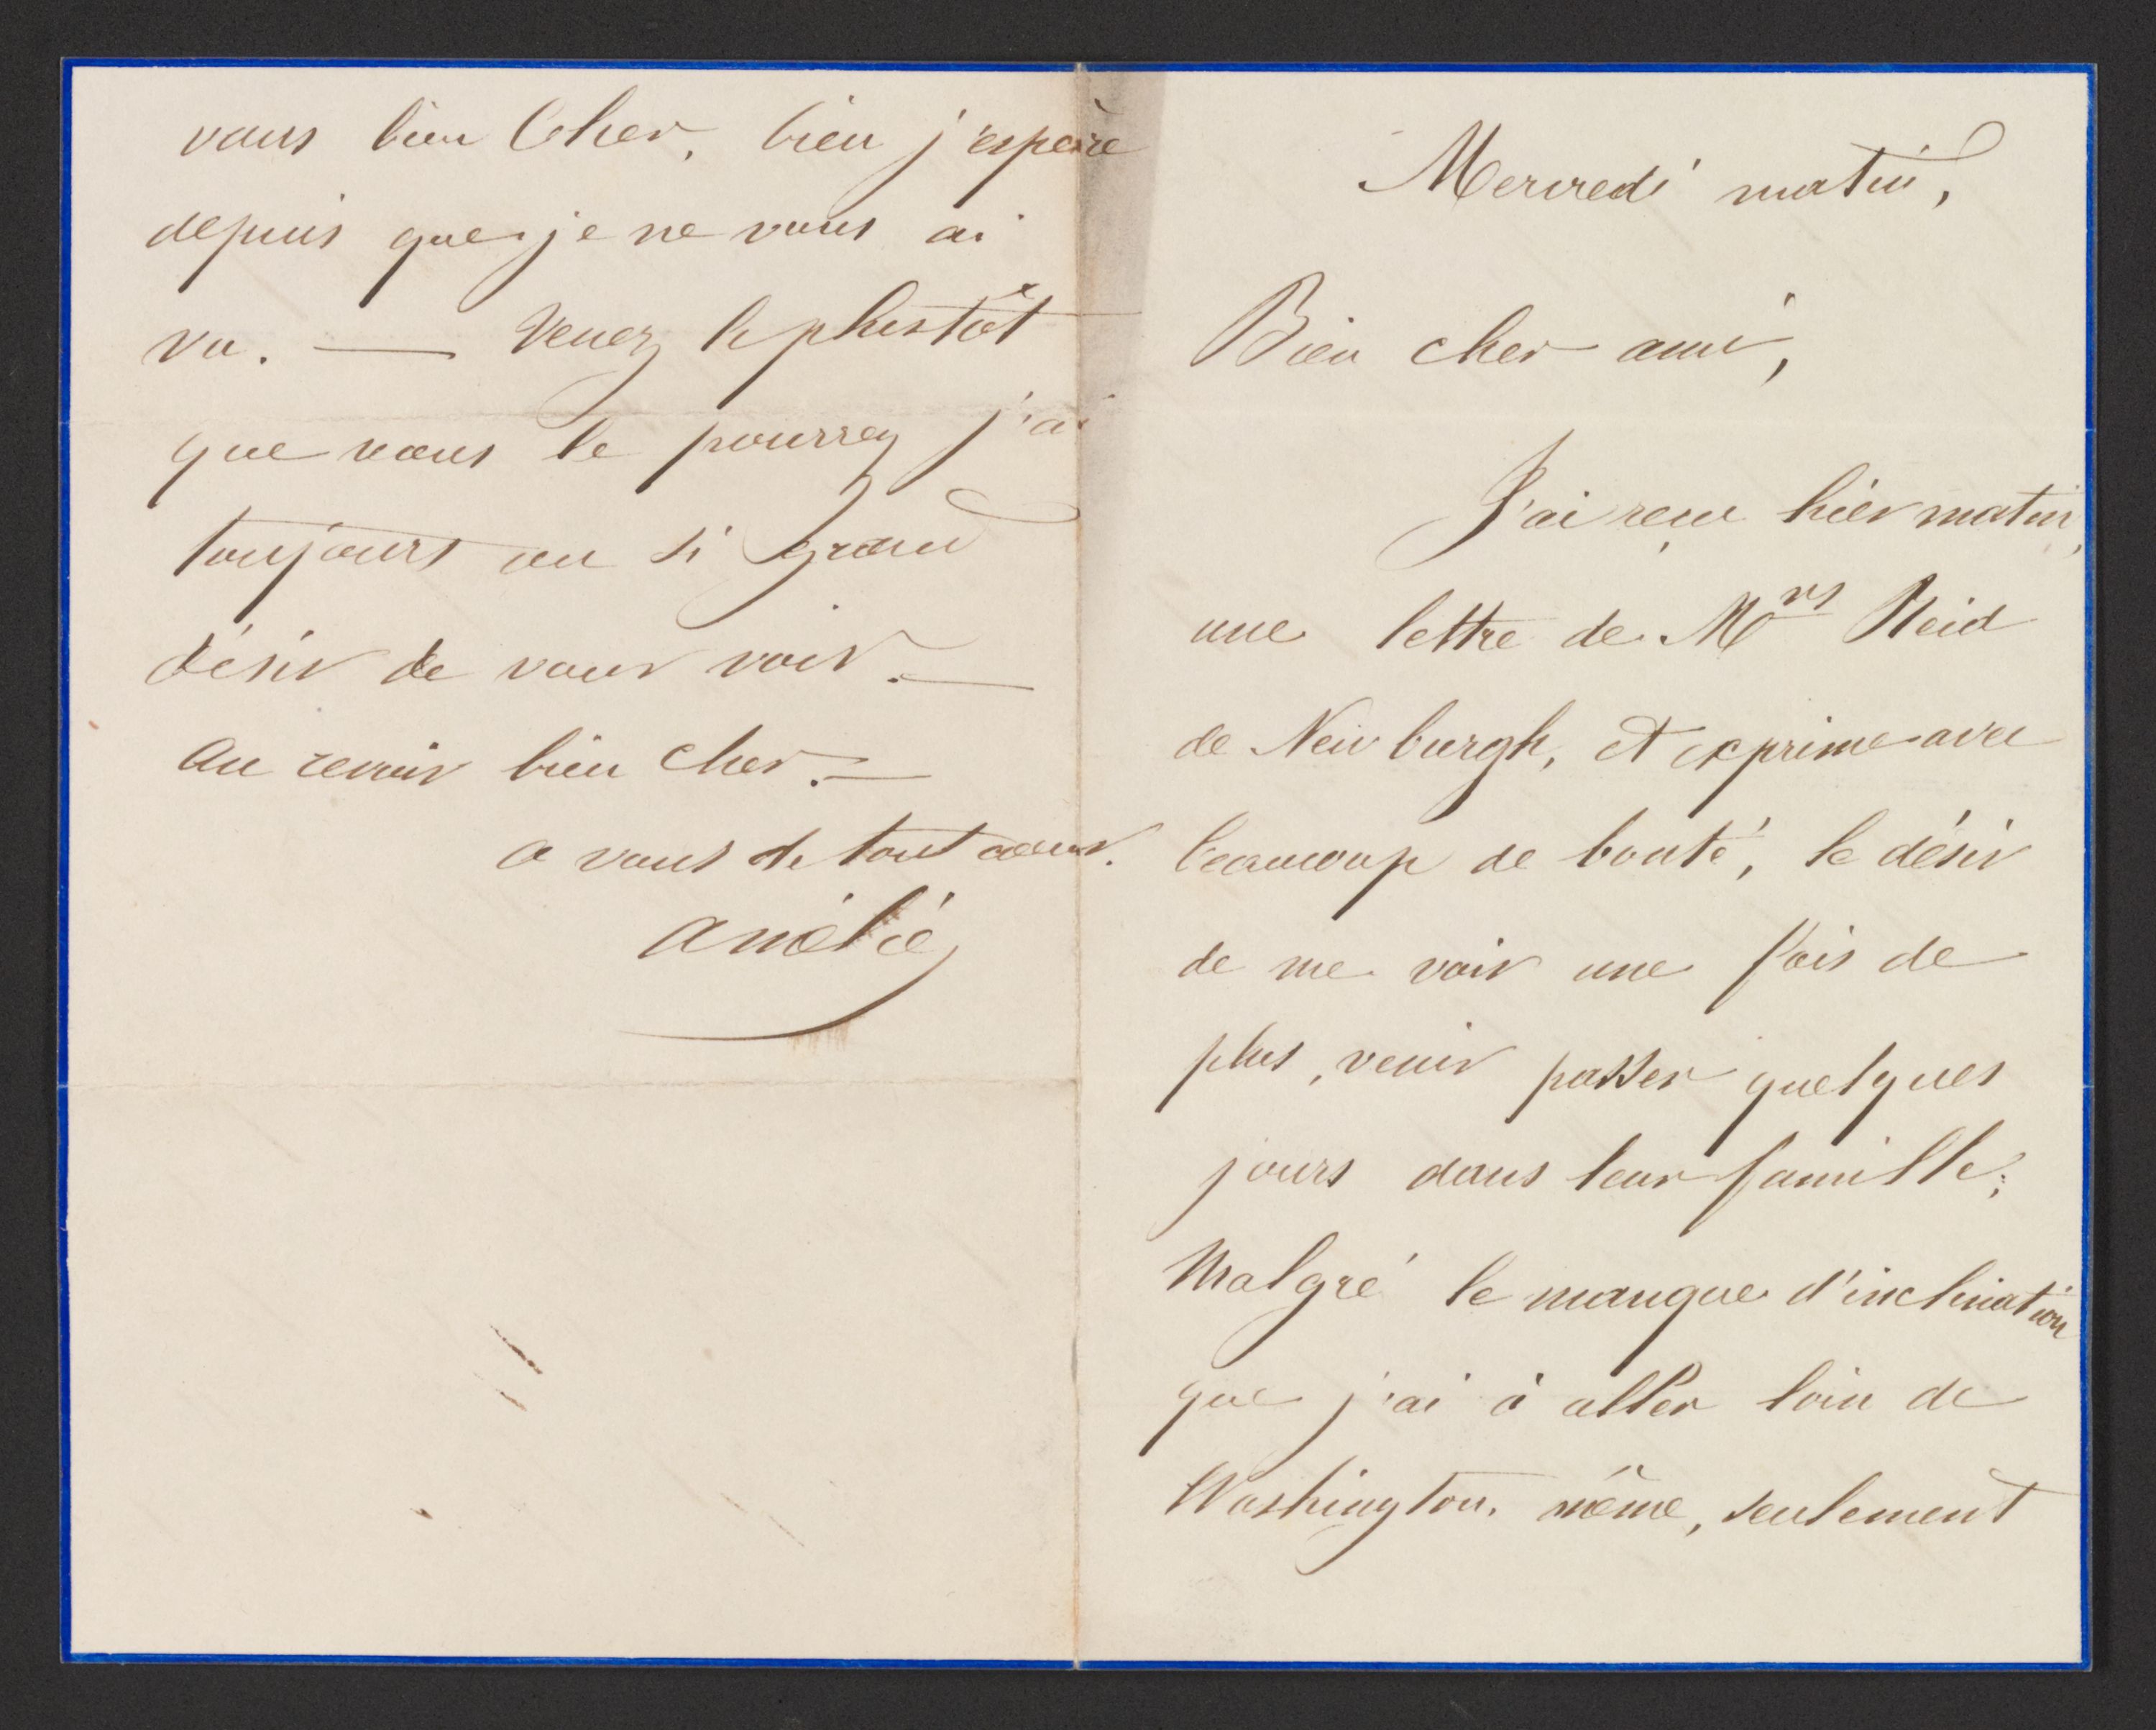 Mercredi matin,
Bien cher ami,
J'ai reçu hier matin,
une lettre de Mrs Reid
de Newburgh, et exprime avec
beaucoup de bonté, le désir
de me voir une fois de
plus, venir passer quelques
jours dans leur famille;
Malgré le manque d'inclination
que j'ai à aller loin de
Washington, même, seulement
vous bien Cher, bien j'espère
depuis que je ne vous ai
vu. — Venez le plustôt
que vous le pourrez j'ai
toujours un si grand
désir de vous voir. —
Au revoir bien Cher. —
a vous de tout coeur.
Amélie